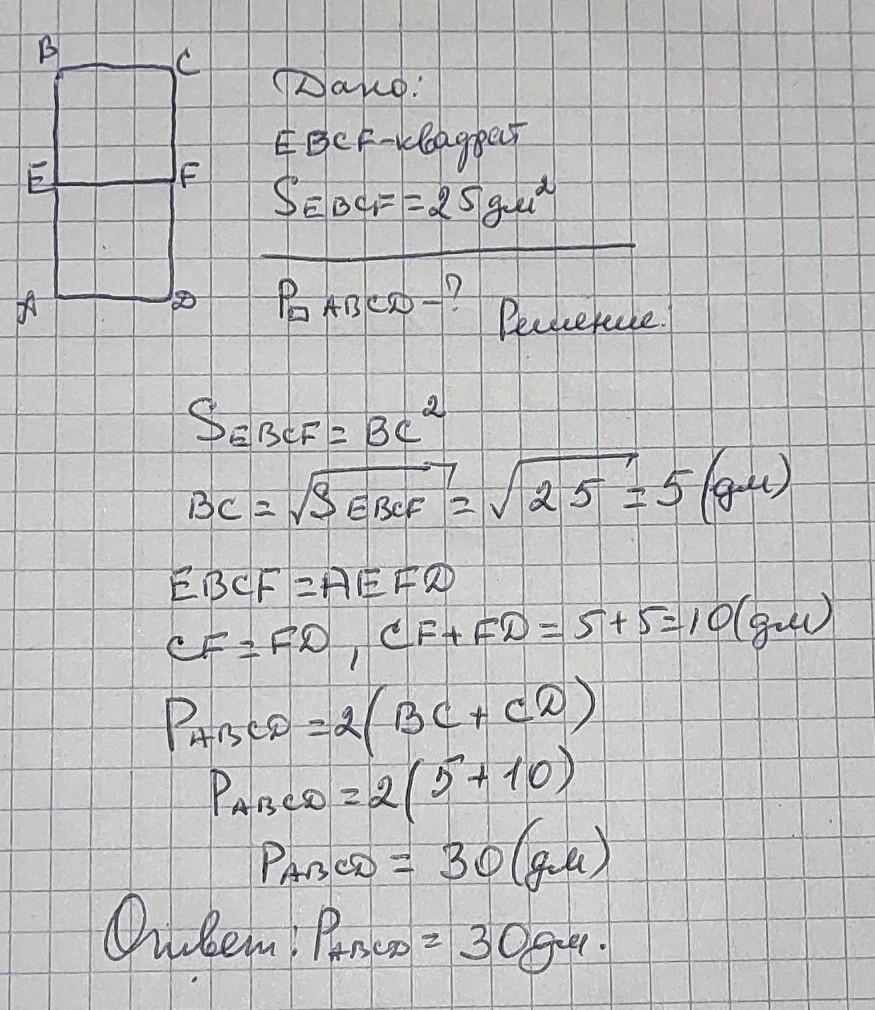 B C
E F
A D
Дано:
EBCF-квадрат
SEBCF = 25 дм²
P□ABCD-?
Решение:
SEBCF = BC²
BC = √SEBCF = √25 = 5 (дм)
EBCF = AEFD
CF = FD, CF + FD = 5 + 5 = 10 (дм)
PABCD = 2(BC + CD)
PABCD = 2(5 + 10)
PABCD = 30 (дм)
Ответ: PABCD = 30 дм.